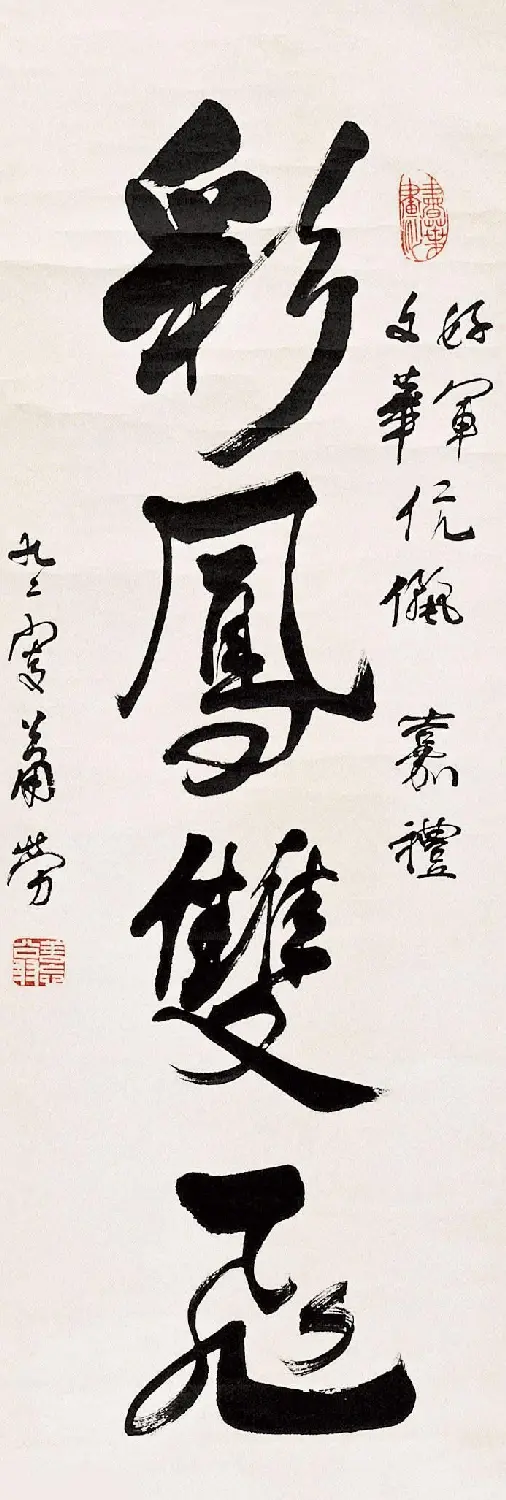 好軍
文華
伉儷 嘉禮
彩鳳雙飛
九二叟蕭勞